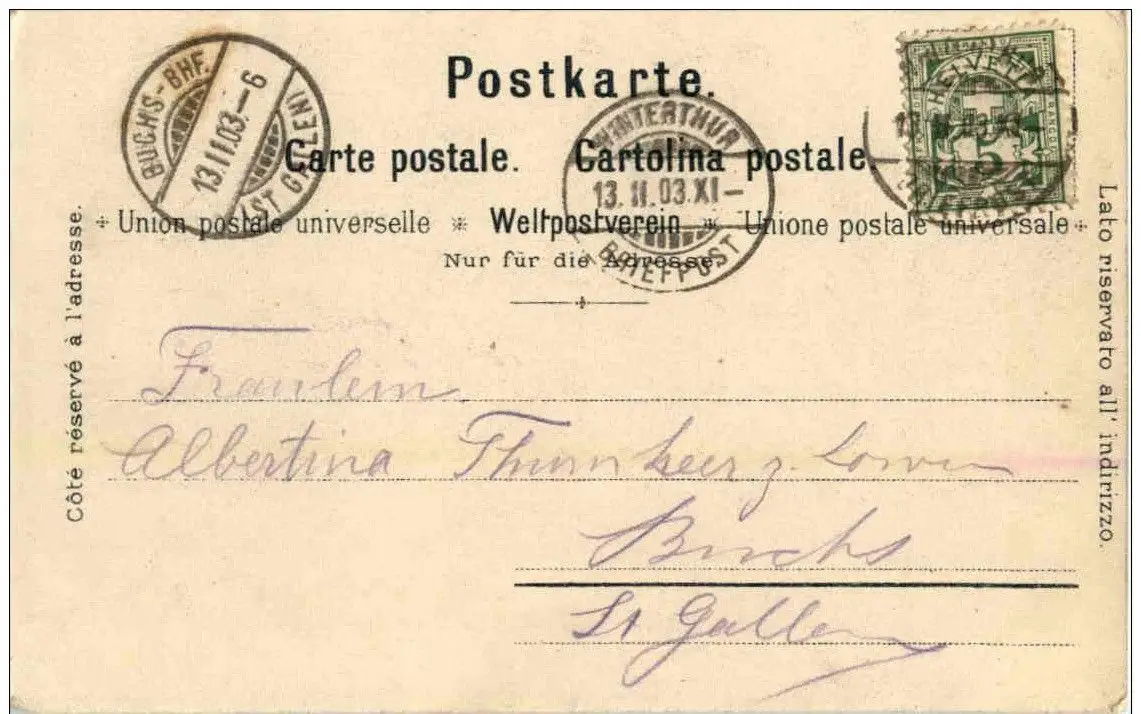 Postkarte.
Carte postale. Cartolina postale.
Union postale universelle * Weltpostverein * Unione postale universale
Nur für die Adresse.
Côté réservé à l'adresse.
Lato riservato all' indirizzo.
BUCHS-BHF.
13.II.03.-6
(ST GALLEN)
WINTERTHUR
13.II.03.XI-
BRIEFPOST
HELVETIA
5
13.II.03.XI-
BRIEFPOST
Fräulein
Albertina Thurnheer z. Löwen
Buchs
St Gallen